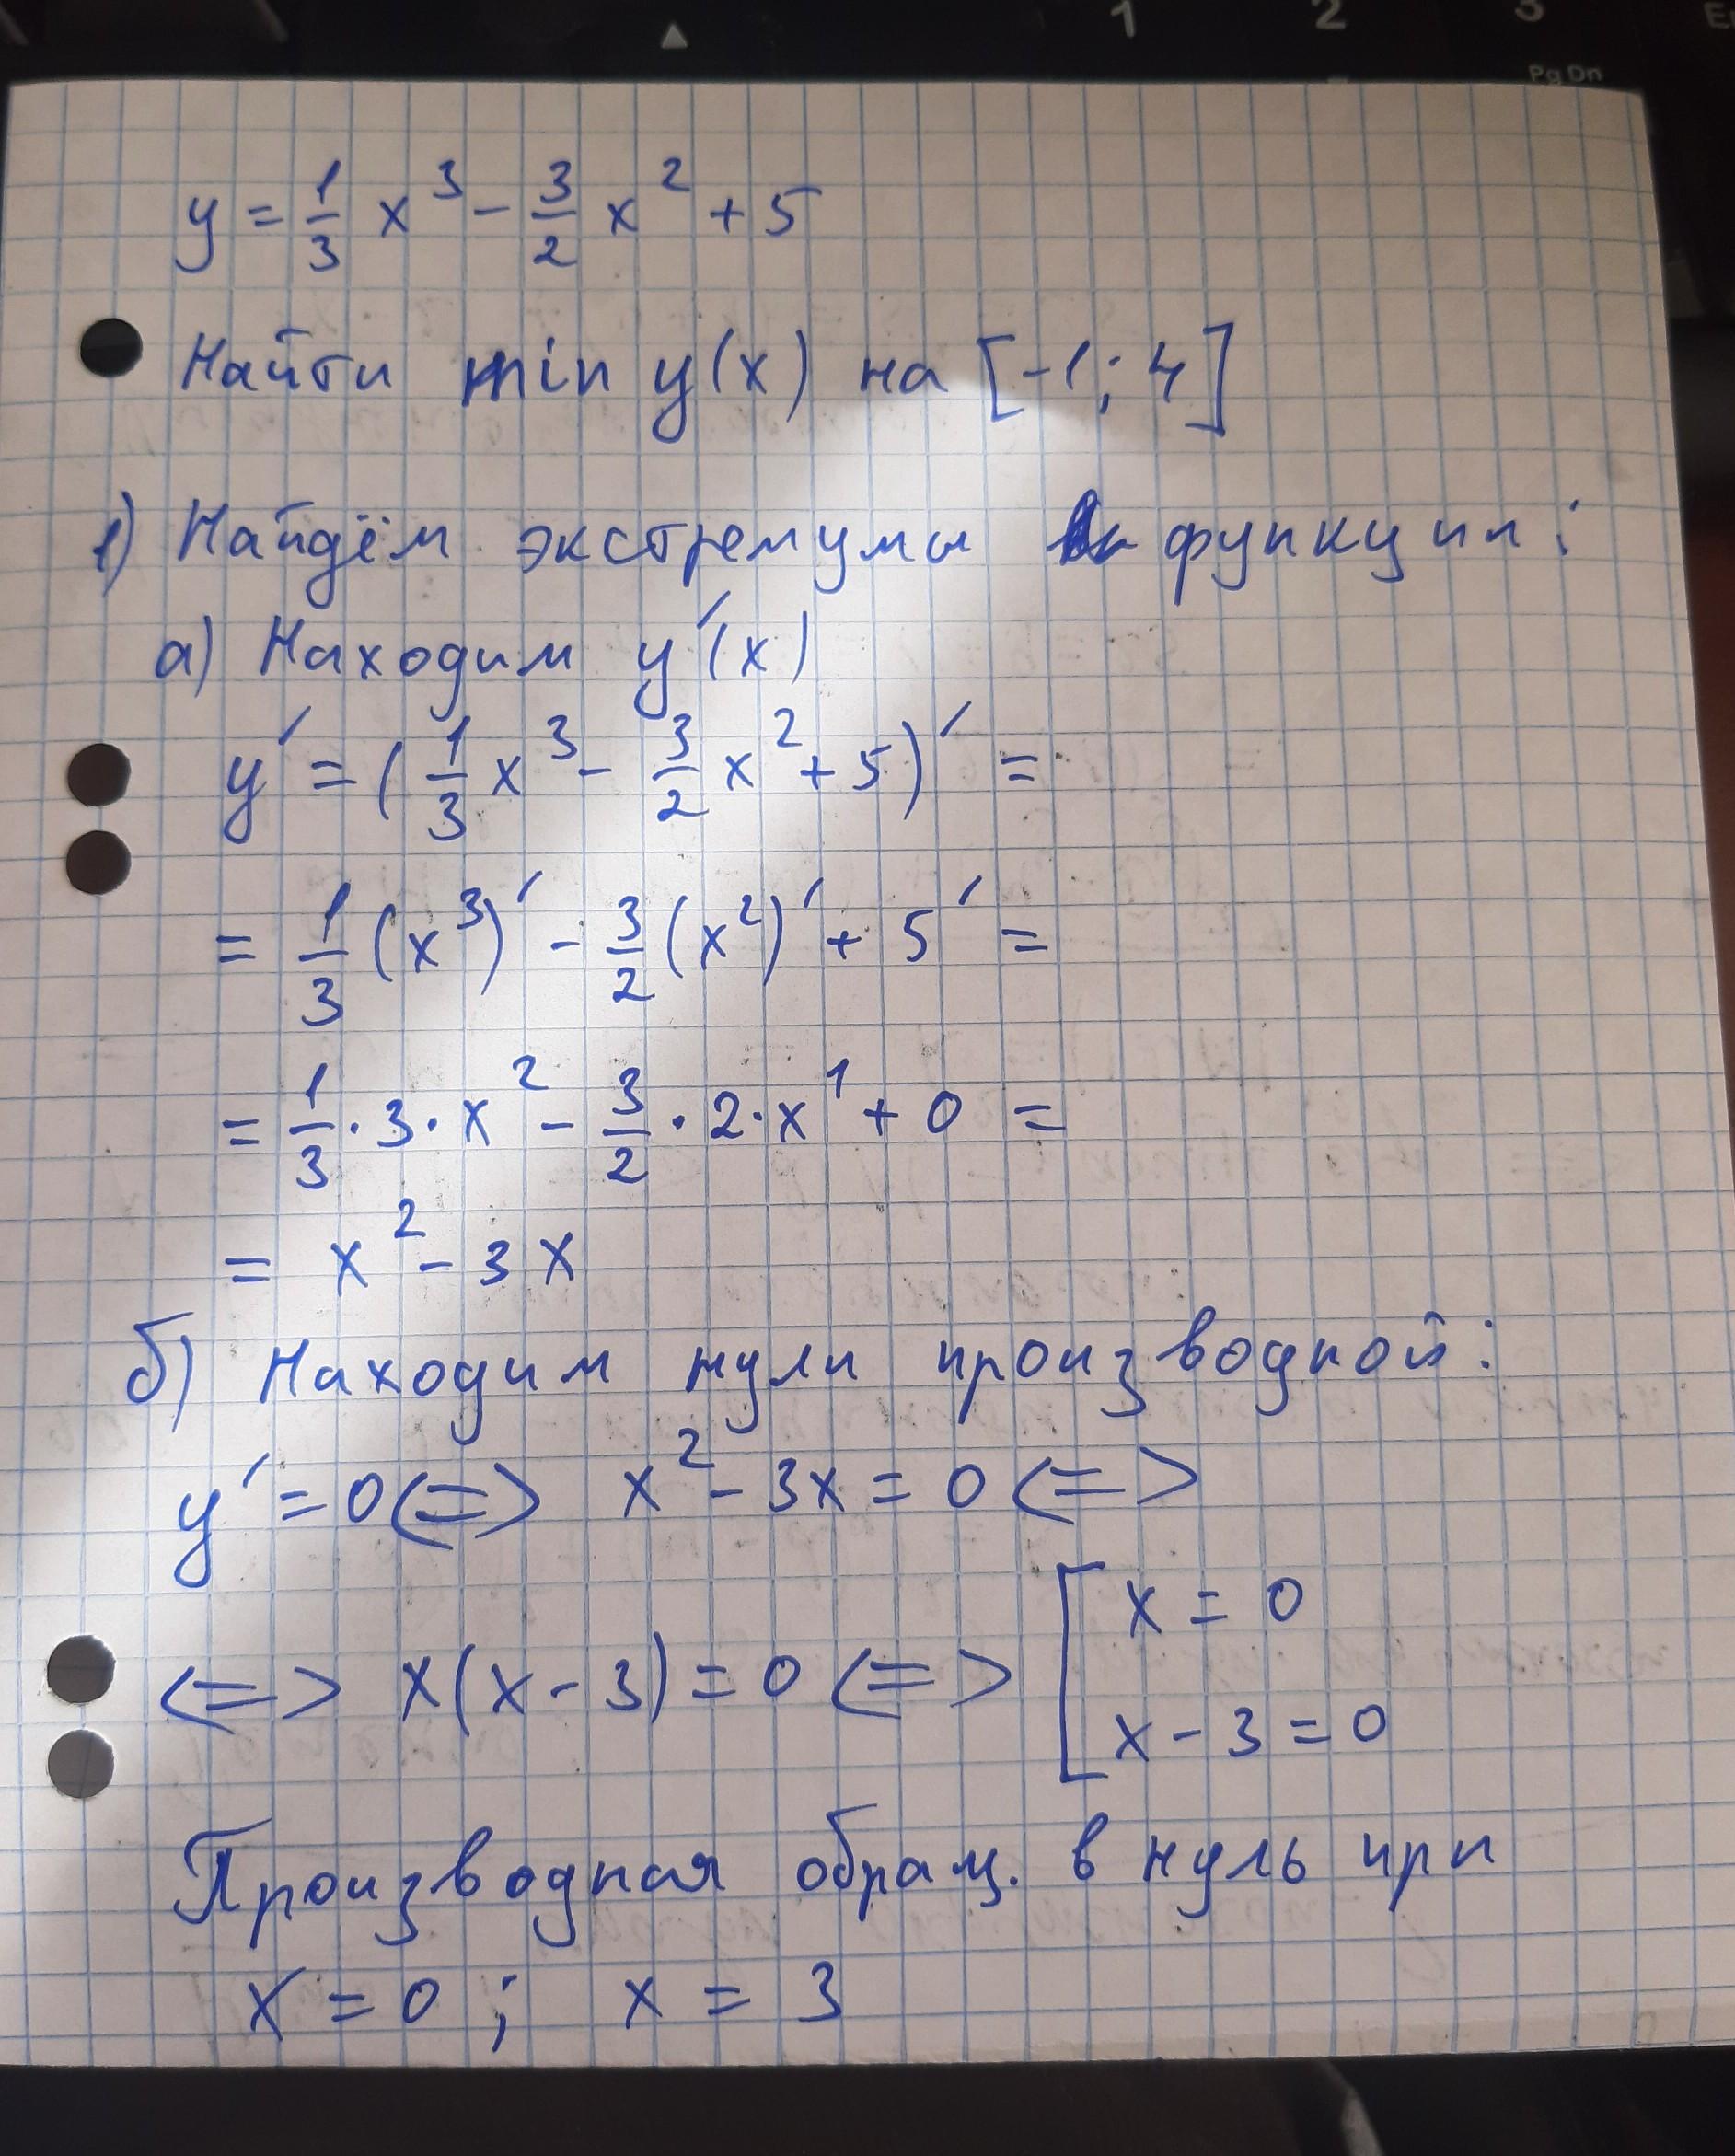 1 2 3
Pg Dn
y = 1/3 x³ - 3/2 x² + 5
Найти min y(x) на [-1; 4]
1) Найдём экстремумы функции:
а) Находим y'(x)
y' = (1/3 x³ - 3/2 x² + 5)' =
= 1/3 (x³)' - 3/2 (x²)' + 5' =
= 1/3 · 3 · x² - 3/2 · 2 · x¹ + 0 =
= x² - 3x
б) Находим нули производной:
y' = 0 <=> x² - 3x = 0 <=>
<=> x(x - 3) = 0 <=> [ x = 0
x - 3 = 0
Производная обращ. в нуль при
x = 0 ; x = 3